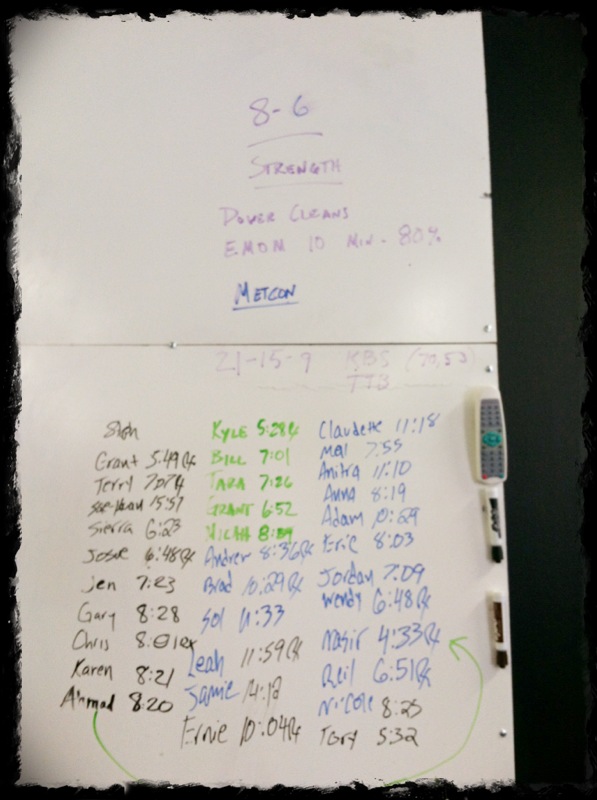 8-6
STRENGTH
POWER CLEANS
EMOM 10 MIN - 80%
METCON
21-15-9 KBS (70,53)
TTB
Grant 5:49 Rx
Terry 7:07 Rx
15:57
Sierra 6:23
Josue 6:48 Rx
Jen 7:23
Gary 8:28
Chris 8:01 Rx
Karen 8:21
Ahmad 8:20
KYLE 5:28 Rx
BILL 7:01
TARA 7:26
GRANT 6:52
MICAH
Andrew 8:36 Rx
Brad 10:29 Rx
Sol 11:33
Leah 11:59 Rx
Jamie 14:12
Ernie 10:04 Rx
Claudette 11:18
Mal 7:55
Anitra 11:10
Anna 8:19
Adam 10:29
Eric 8:03
Jordan 7:09
Wendy 6:48 Rx
Nasir 4:33 Rx
Reil 6:51 Rx
Nicole 8:25
Tory 5:32